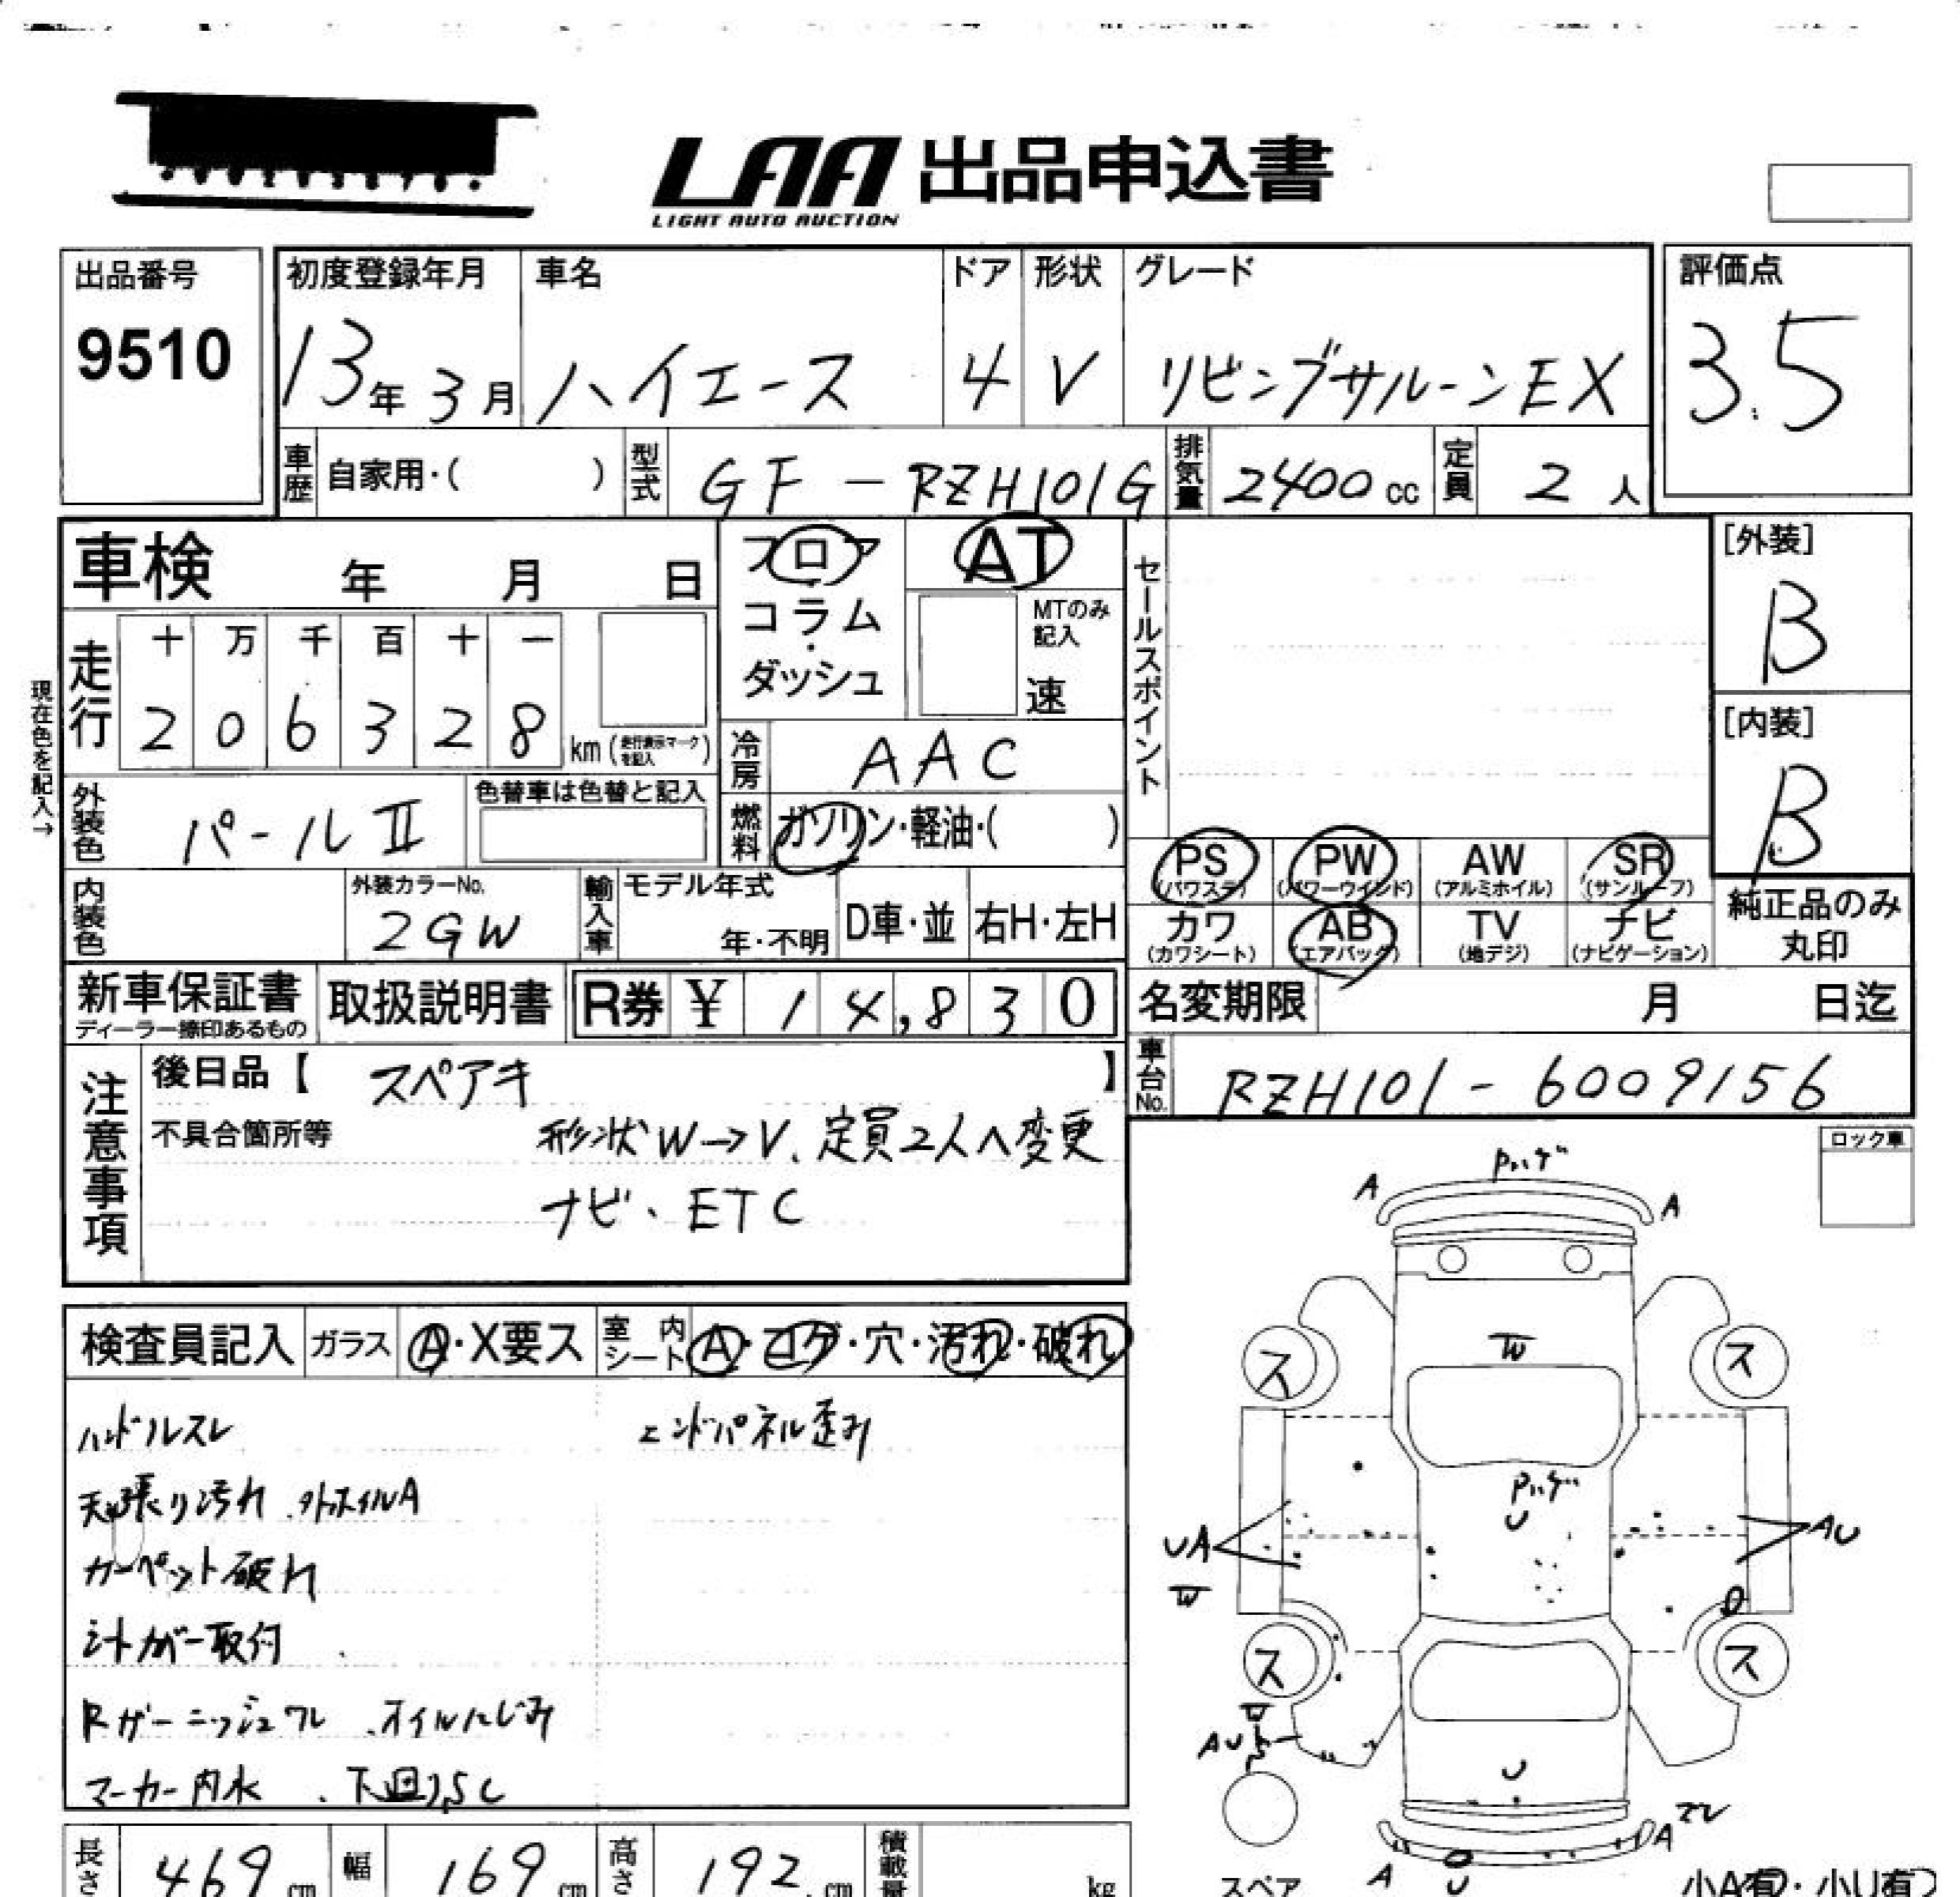 LAA 出品申込書
LIGHT AUTO AUCTION
出品番号
9510
初度登録年月
13年 3月
車名
ハイエース
ドア
4
形状
V
グレード
リビングサルーンEX
評価点
3.5
車歴 自家用・( )
型式 GF-RZH101G
排気量 2400cc
定員 2人
車検 年 月 日
フロア・コラム・ダッシュ
AT
MTのみ記入
速
セールスポイント
[外装]
B
[内装]
B
現在色を記入→
走行
十 万 千 百 十 一
2 0 6 3 2 8 km (走行表示マークを記入)
冷房 AAC
燃料 ガソリン・軽油・( )
外装色 パールⅡ
色替車は色替と記入
内装色
外装カラーNo.
2GW
輸入車 モデル年式
年・不明
D車・並
右H・左H
PS (パワステ)
PW (パワーウインド)
AW (アルミホイル)
SR (サンルーフ)
カワ (カワシート)
AB (エアバッグ)
TV (地デジ)
ナビ (ナビゲーション)
純正品のみ丸印
新車保証書
ディーラー捺印あるもの
取扱説明書
R券 ¥ 14,830
名変期限 月 日迄
車台No. RZH101-6009156
注意事項
後日品【 スペアキ 】
不具合箇所等
形状W→V、定員2人へ変更
ナビ、ETC
ロック車
検査員記入
ガラス A・X要ス
室内シート A・コゲ・穴・汚れ・破れ
ハンドルスレ
エンドパネル歪み
天張り汚れ、外ホイルA
カーペット破れ
シートカバー取付
Rガーニッシュワレ、オイルにじみ
マーカー内水、下回りSC
Pハゲ
A A
W
ス ス
Pハゲ
U
UA
W
AU
ス ス
W
AU
U
ズレ
A
A
U
スペア
小A有・小U有
長さ 469cm
幅 169cm
高さ 192cm
積載量 kg